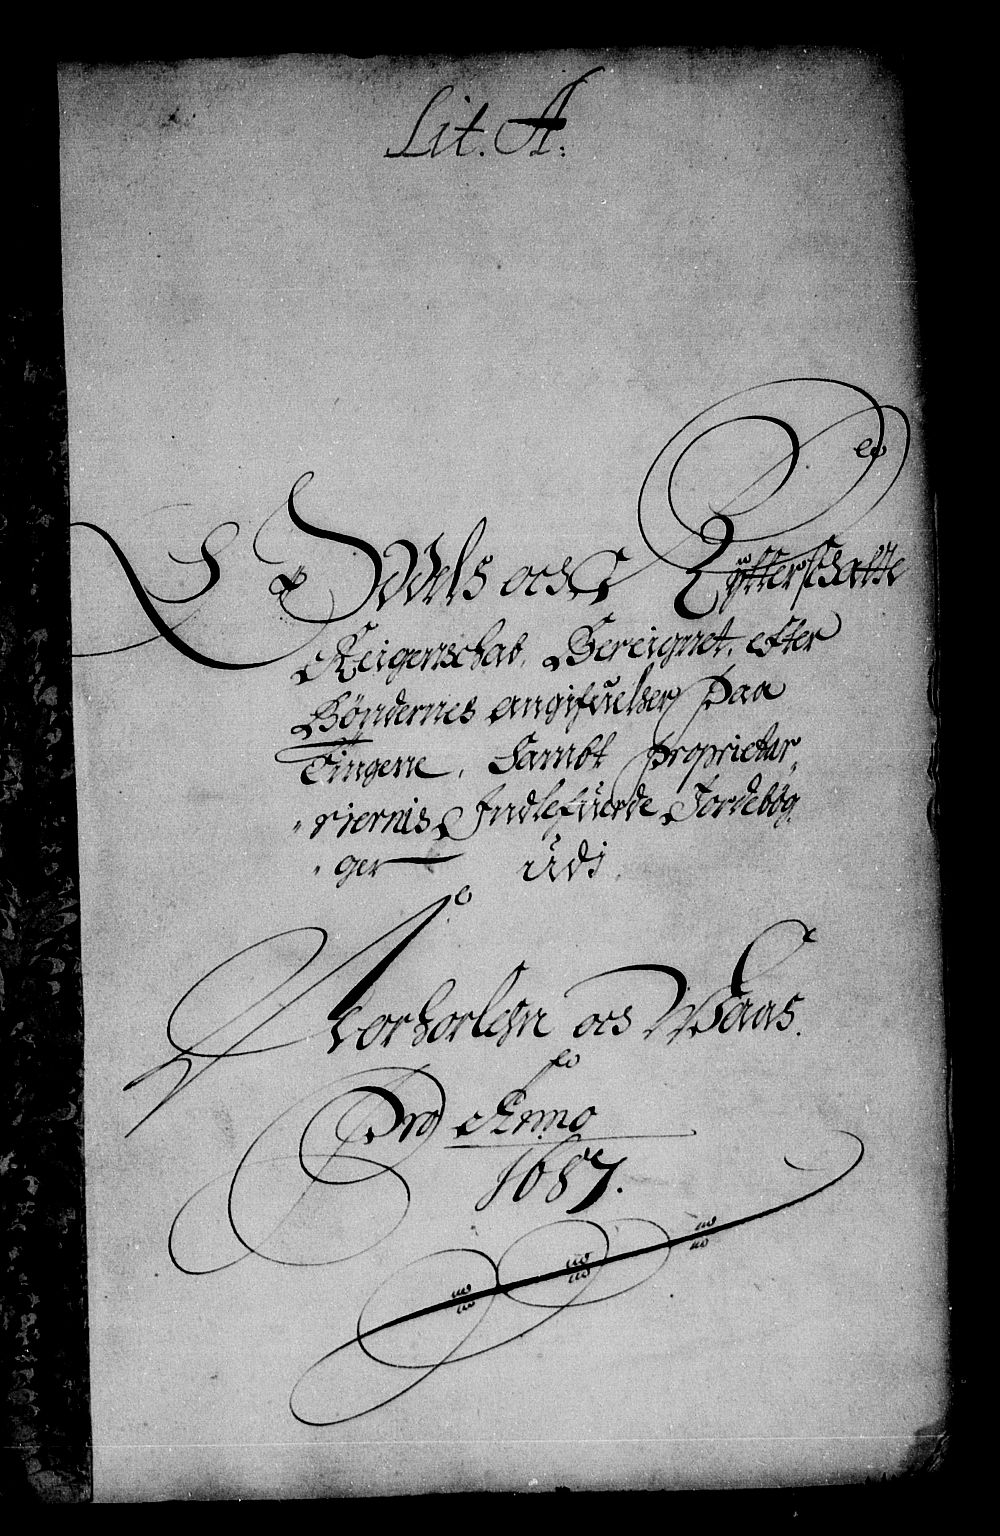 Lit. A:
Oddels och Rytterschatte
Reigenschab, Bereignet, efter
Bøndernes angifuelser paa
Tingene, Sambt proprietar„
„riernis Indlefuerde Jordebøg
„ger udi
Norhorlehn och Waas.
Pro Anno
1687.